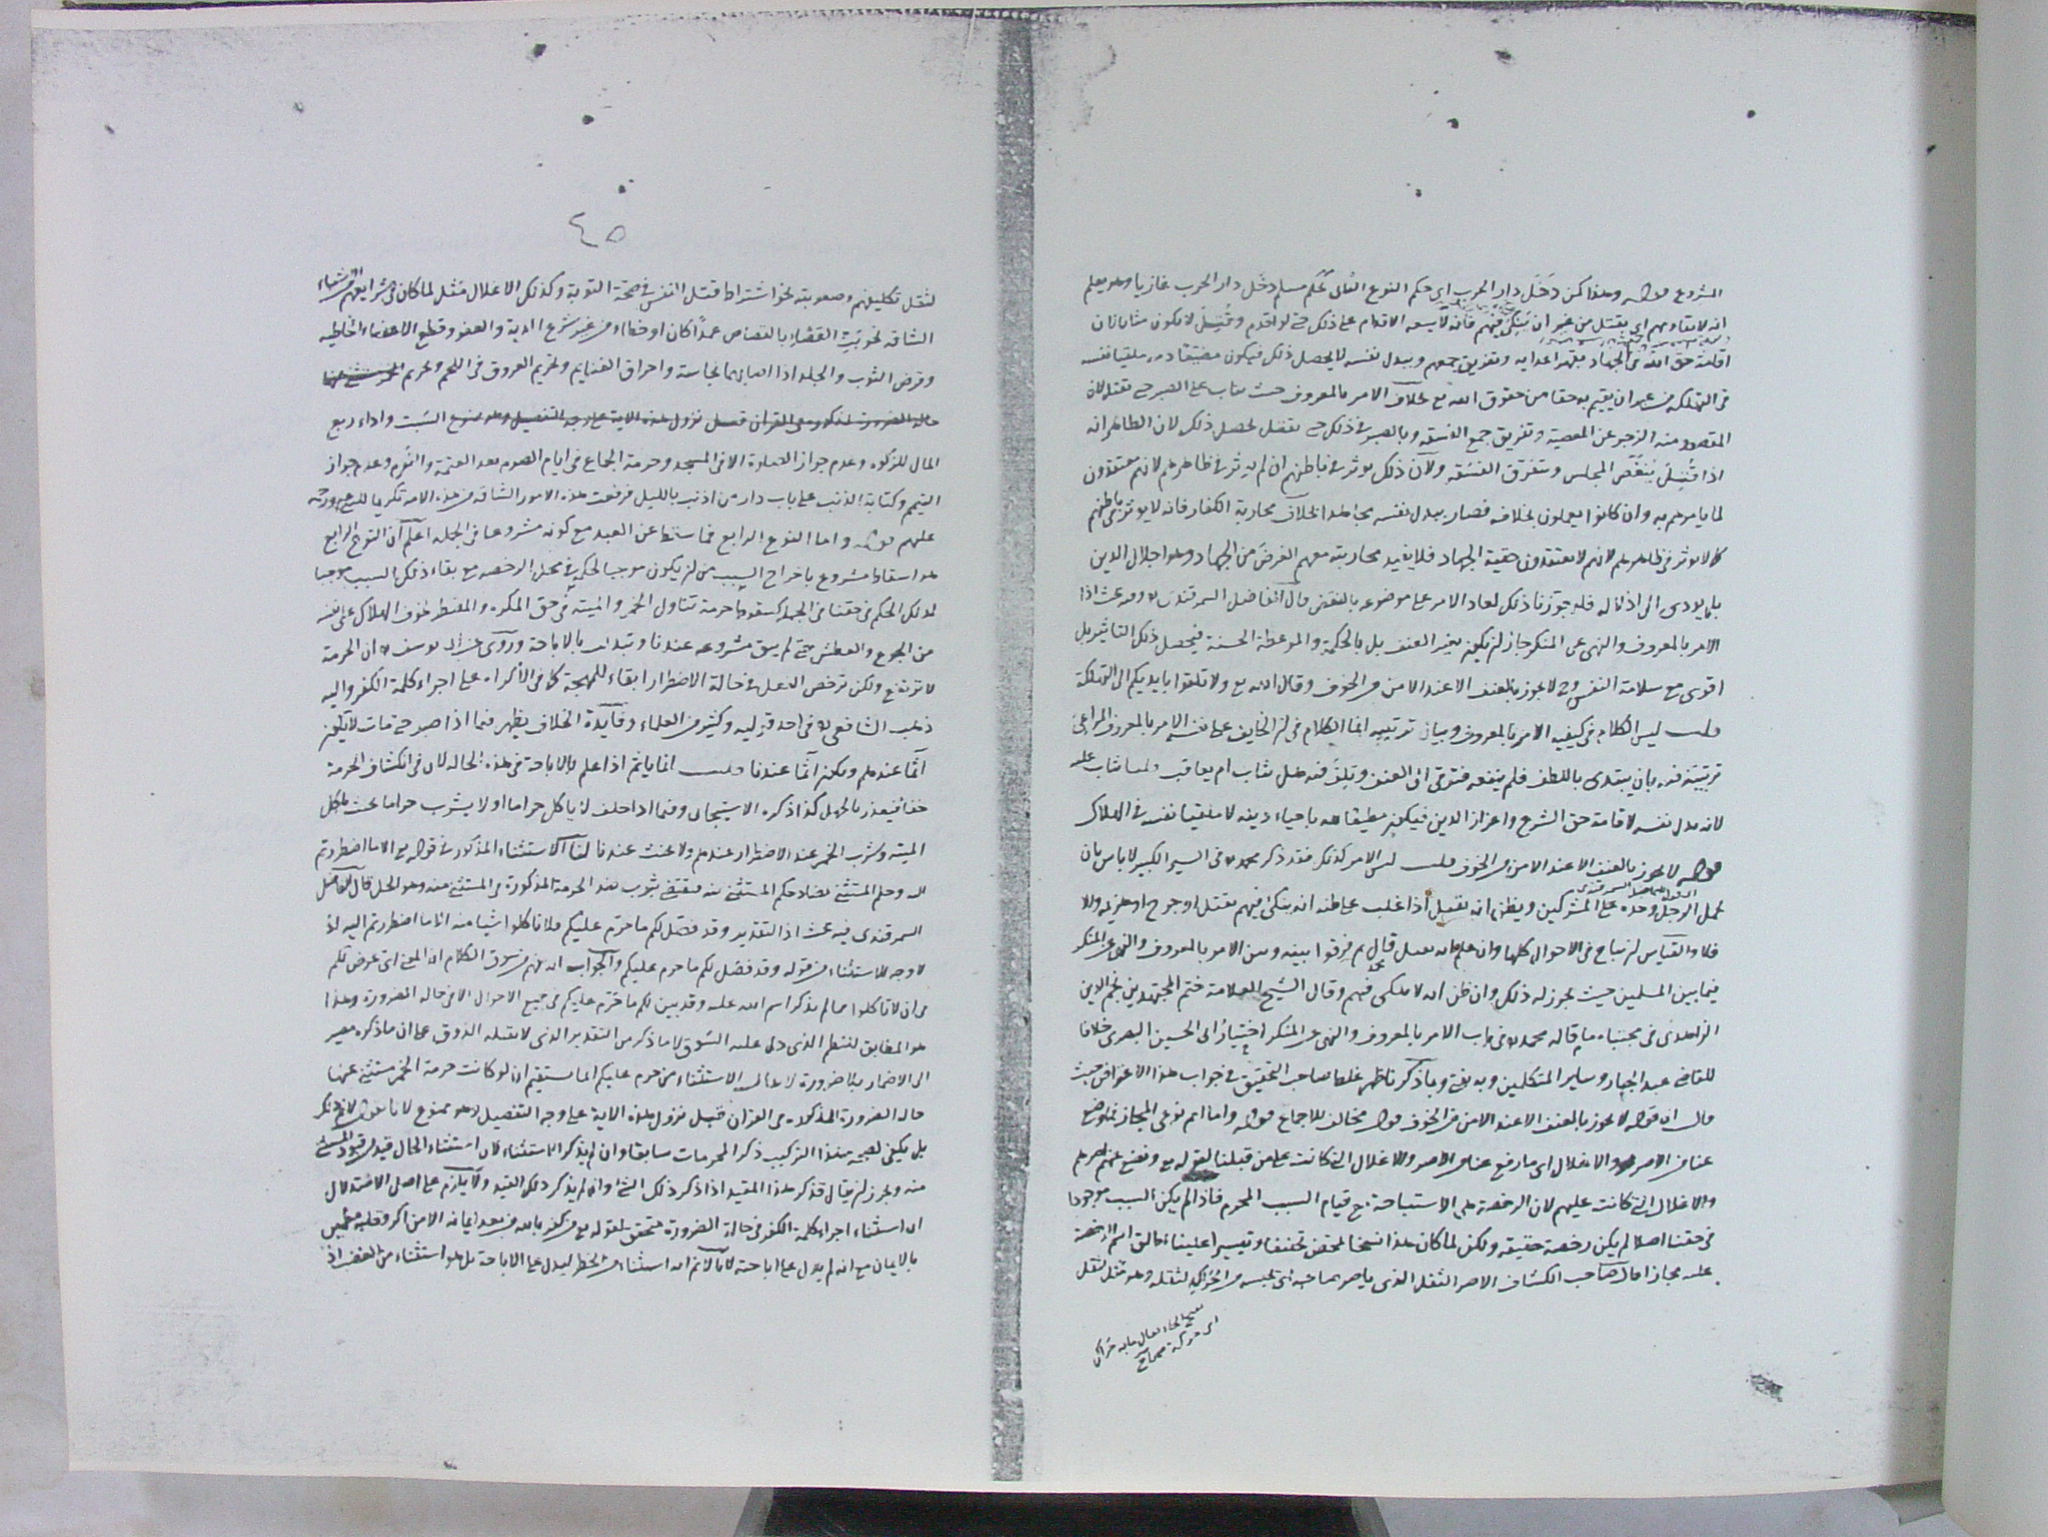 المشروع قوله وهذا كمن دخل دار الحرب اى حكم النوع الثانى كحكم مسلم دخل دار الحرب غازيا وهو يعلم
انه لا يقاومهم اى يقتل من غير ان ينكى فيهم فانه لا يسعه الاقدام على ذلك حتى لو اقدم وقتل لا يكون مثابا لان
اقامة حق الله فى الجهاد بقهر اعدايه وتفريق جمعهم وببدل نفسه لا يحصل ذلك فيكون مضيعا دمه ملقيا نفسه
فى التهلكه من غير ان يقيم به حقا من حقوق الله مع بخلاف الامر بالمعروف حيث يثاب على الصبر حتى يقتل لان
المقصود منه الزجر عن المعصية وتفريق جمع الفسقه وبالصبر فى ذلك حتى يقتل يحصل ذلك لان الظاهر انه
اذا قتل ينغص المجلس ويتفرق الفسقه ولان ذلك يوثر فى باطنهم ان لم يوثر فى ظاهرهم لانهم معتقدون
لما يامرهم به وان كانوا يعملون بخلافه فصار ببدل نفسه مجاهدا بخلاف محاربة الكفار فانه لا يوثر فى باطنهم
كما لا يوثر فى ظاهرهم لانهم لا يعتقدون حقية الجهاد فلا يفيد محاربته معهم الغرض من الجهاد وهو اجلال الدين
بل يودى الى اذلاله فلو جوزنا ذلك لعاد الامر على موضوعه بالنقض قال الفاضل السمرقندى وفيه بحث اذا
الامر بالمعروف والنهى عن المنكر جاز ان يكون بغير العنف بل بالحكمة والموعظة الحسنة فيحصل ذلك التاثير بل
اقوى مع سلامة النفس ولا يجوز بالعنف الا عند الامن من الخوف وقال الله تع ولا تلقوا بايديكم الى التهلكة
قلت ليس الكلام فى كيفيه الامر بالمعروف وبيان ترتيبه انما الكلام فى ان الخايف على نفسه الامر بالمعروف المراعى
ترتيبه فيه بان يبتدى باللطف فلم ينفعه فترقى الى العنف وتلف فيه هل يثاب ام يعاقب ولهذا يثاب عليه
لانه بدل نفسه لاقامة حق الشرع واعزاز الدين فيكون مطيعا لله باحياء دينه لا ملقيا نفسه فى الهلاك
قوله لا يجوز بالعنف الا عند الامن من الخوف قلت ليس الامر كذلك فقد ذكر محمد فى السير الكبير لا باس بان
يحمل الرجل وحده على المشركين ويظن انه يقتل اذا غلب على ظنه انه ينكى فيهم بقتل او جرح او هزيمه والا
فلا والقياس ان يباح فى الاحوال كلها وان علم انه يقتل قال ثم فرقوا بينه وبين الامر بالمعروف والنهى عن المنكر
فيما بين المسلمين حيث يجوز له ذلك وان ظن انه لا ينكى فيهم وقال الشيخ العلامة ختم المجتهدين نجم الدين
الزاهدى فى مجتباه ما قاله محمد فى باب الامر بالمعروف والنهى عن المنكر اختيار ابى الحسين البصرى خلافا
للقاضى عبد الجبار وساير المتكلمين وبه نفتى وبما ذكر ناظهر غلط صاحب التحقيق فى جواب هذا الاعتراض حيث
قال ان قوله لا يجوز بالعنف الا عند الامن من الخوف قول مخالف للاجماع قوله واما اتم نوعى المجاز فما وضع
عنا من الاصر والاغلال اى ما رفع عنا من الاصر والاغلال التى كانت على من قبلنا لقوله تع ويضع عنهم اصرهم
والاغلال التى كانت عليهم لان الرخصة هى الاستباحة مع قيام السبب المحرم فاذا لم يكن السبب موجودا
فى حقنا اصلا لم يكن رخصة حقيقه ولكن لما كان هذا نسخا لمحض تخفيفا وتيسيرا علينا اطلق اسم الرخصة
عليه مجازا قال صاحب الكشاف الاصر الثقل الذى ياصر صاحبه اى يحبسه من الحراك لثقله وهو مثل لثقل
بفتح الحاء يقال ما به حراك
اى حركة صحاح
٤٥
لثقل تكليفهم وصعوبته نحو اشتراط قتل النفس فى صحة التوبة وكذلك الاغلال مثل لما كان فى شرايعهم من الاشياء
الشاقه نحو بت القضاء بالقصاص عمدا كان او خطاء من غير شرع الدية والعفو وقطع الاعضاء الخاطيه
وقرض الثوب والجلد اذا اصابهما نجاسة واحراق الغنايم وتحريم العروق فى اللحم وتحريم
السبت واداء ربع
المال للزكوه وعدم جواز الصلوة الا فى المسجد وحرمة الجماع فى ايام الصوم بعد العتمة والنوم وعدم جواز
التيمم وكتابة الذنب على باب دار من اذنب بالليل فرفعت هذه الامور الشاقه من هذه الامه تكريما للنبى ورحمه
عليهم قوله واما النوع الرابع فما سقط عن العبد مع كونه مشروعا فى الجمله اعلم ان النوع الرابع
هو اسقاط مشروع باخراج السبب من ان يكون موجبا للحكم فى محل الرخصه مع بقاء ذلك السبب موجبا
لذلك الحكم فى حقنا فى الجمله كسقوط حرمة تناول الخمر والميته فى حق المكره والمضطر لخوف الهلاك على نفسه
من الجوع والعطش حتى لم يبق مشروعه عندنا وتبدلت بالاباحة وروى عن ابى يوسف ان الحرمة
لا ترتفع ولكن ترخص الفعل فى حالة الاضطرار ابقاء للمهجة كما فى الاكراه على اجراء كلمة الكفر واليه
ذهب الشافعى فى احد قوليه وكثير من العلماء وفايدة الخلاف يظهر فيما اذا صبر حتى مات لا يكون
آثما عندهم ويكون آثما عندنا قلت انما ياثم اذا علم بالاباحة فى هذه الحاله لان فى انكشاف الحرمة
خفاء فيعذر بالجهل كذا ذكره الاسبيجابى وفيما اذا حلف لا ياكل حراما او لا يشرب حراما يحنث باكل
الميته وشرب الخمر عند الاضطرار عندهم ولا يحنث عندنا لنا الاستثناء المذكور فى قوله تع الا ما اضطررتم
اليه وحكم المستثنى يضاد حكم المستثنى منه فيقتضى ثبوت ضد الحرمة المذكورة فى المستثنى منه وهو الحل قال الفاضل
السمرقندى فيه بحث اذ التقدير وقد فصل لكم ما حرم عليكم فلا تاكلوا شيا منه الا ما اضطررتم اليه اذ
لا وجه للاستثناء من قوله وقد فصل لكم ما حرم عليكم والجواب انه يفهم من سوق الكلام ان المعنى اى غرض لكم
فى ان لا تاكلوا مما لم يذكر اسم الله عليه وقد بين لكم ما حرم عليكم فى جميع الاحوال الا فى حاله الضرورة وهذا
هو المطابق للنظم الذى دل عليه السوق لا ما ذكر من التقدير الذى لا يقبله الذوق على ان ما ذكره يصير
الى الاضمار بلا ضرورة لا يقال الاستثناء من حرم عليكم انما يستقيم ان لو كانت حرمة الخمر مستثنى عنها
حاله الضرورة المذكورة فى القران قبل نزول هذه الاية على وجه التفصيل وهو ممنوع لانا نقول لا نم ذلك
بل يكفى لصحة هذا التركيب ذكر المحرمات سابقا وان لم يذكر الاستثناء لان استثناء الحال قيد من قيود المستثنى
منه ويجوز ان يقال قد ذكر هذا المقيد اذا ذكر ذلك الشى وان لم يذكر ذلك القيد ولا يلزم على اصل الاستدلال
ان استثناء اجراء كلمة الكفر فى حالة الضرورة متحقق بقوله تع من كفر بالله من بعد ايمانه الا من اكره وقلبه مطمئن
بالايمان مع انه لم يدل على اباحته لانا لا نم انه استثناء من الحظر ليدل على الاباحة بل هو استثناء من الغضب اذ